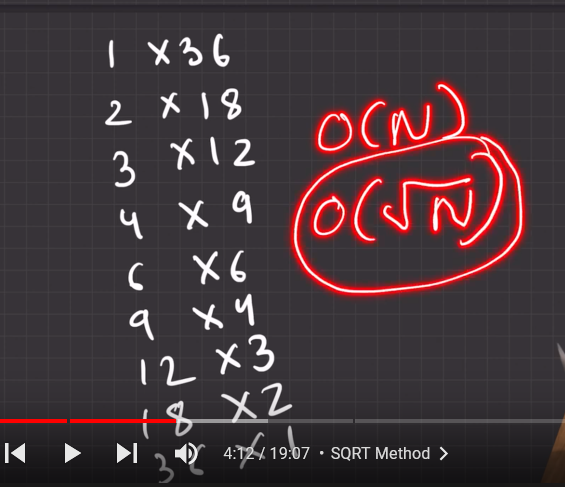 1 × 36
2 × 18
3 × 12
4 × 9
6 × 6
9 × 4
12 × 3
18 × 2
36 × 1
O(N)
O(√N)
4:12 / 19:07 • SQRT Method